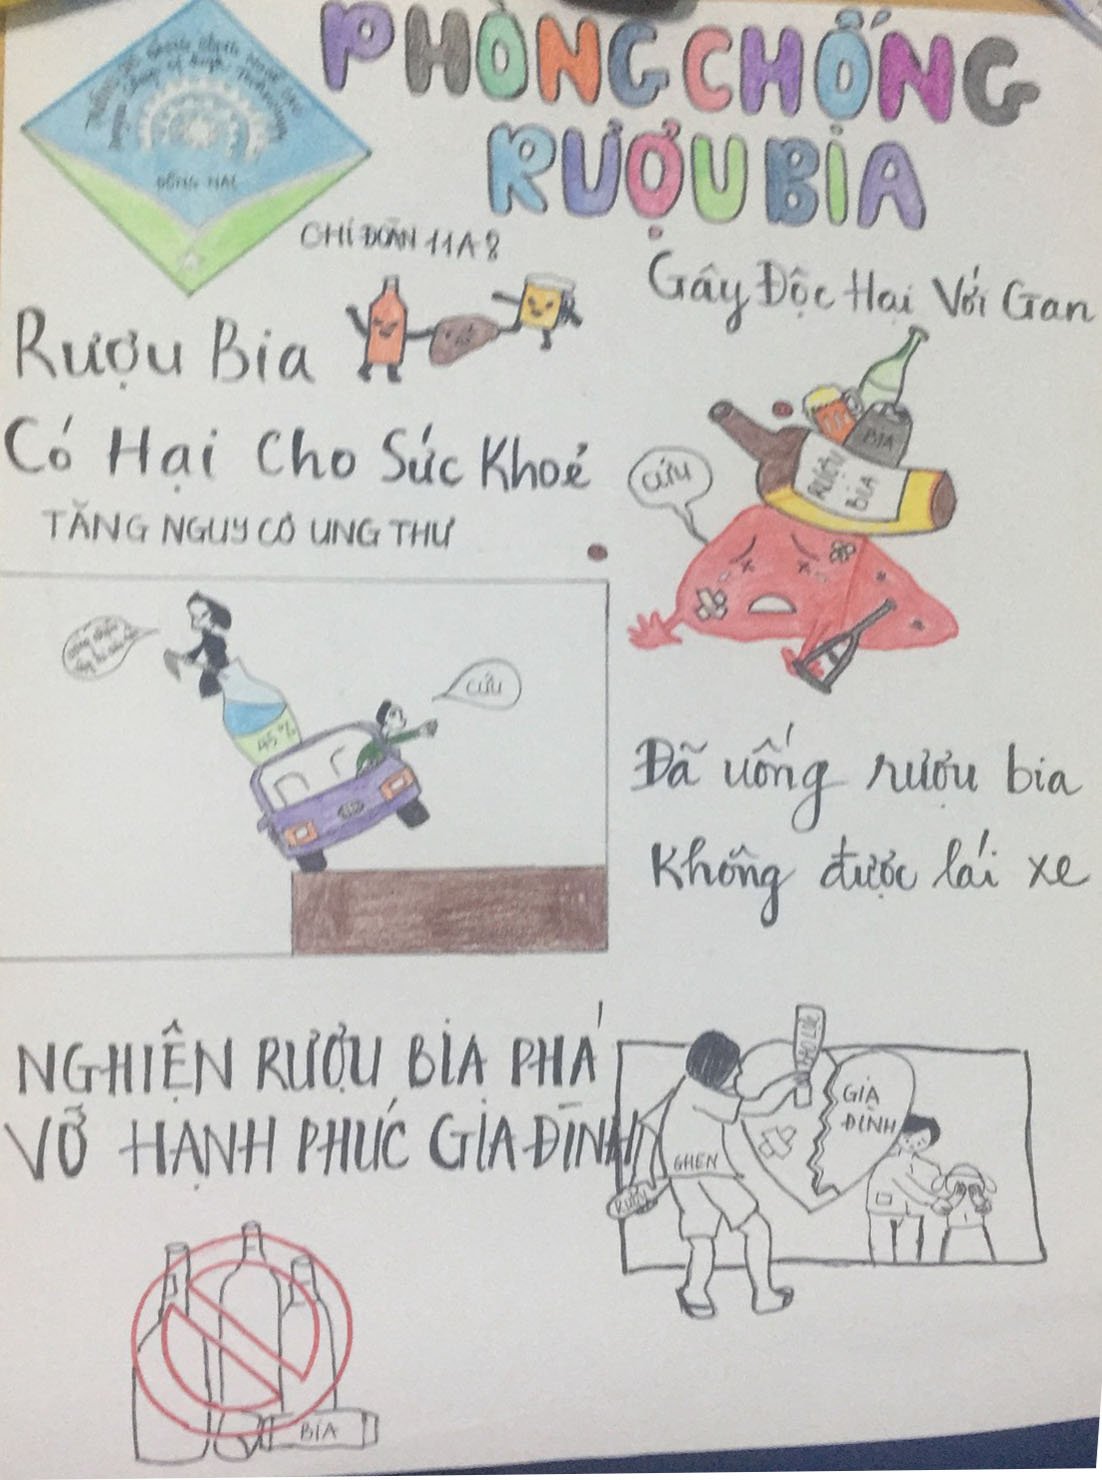 PHÒNG CHỐNG
RƯỢU BIA
ĐỒNG NAI
CHI ĐOÀN 11A8
Gây Độc Hại Với Gan
Rượu Bia
Có Hại Cho Sức Khoẻ
TĂNG NGUY CƠ UNG THƯ
CỨU
BIA
RƯỢU
BIA
CỨU
45%
Đã uống rượu bia
Không được lái xe
NGHIỆN RƯỢU BIA PHÁ
VỠ HẠNH PHÚC GIA ĐÌNH
BẠO LỰC
GIA
ĐÌNH
GHEN
RƯỢU
BIA